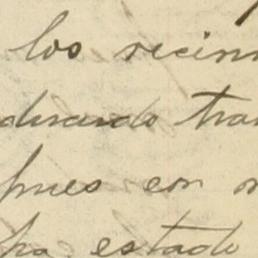 los vecin
durando tra
pues con
ha estado